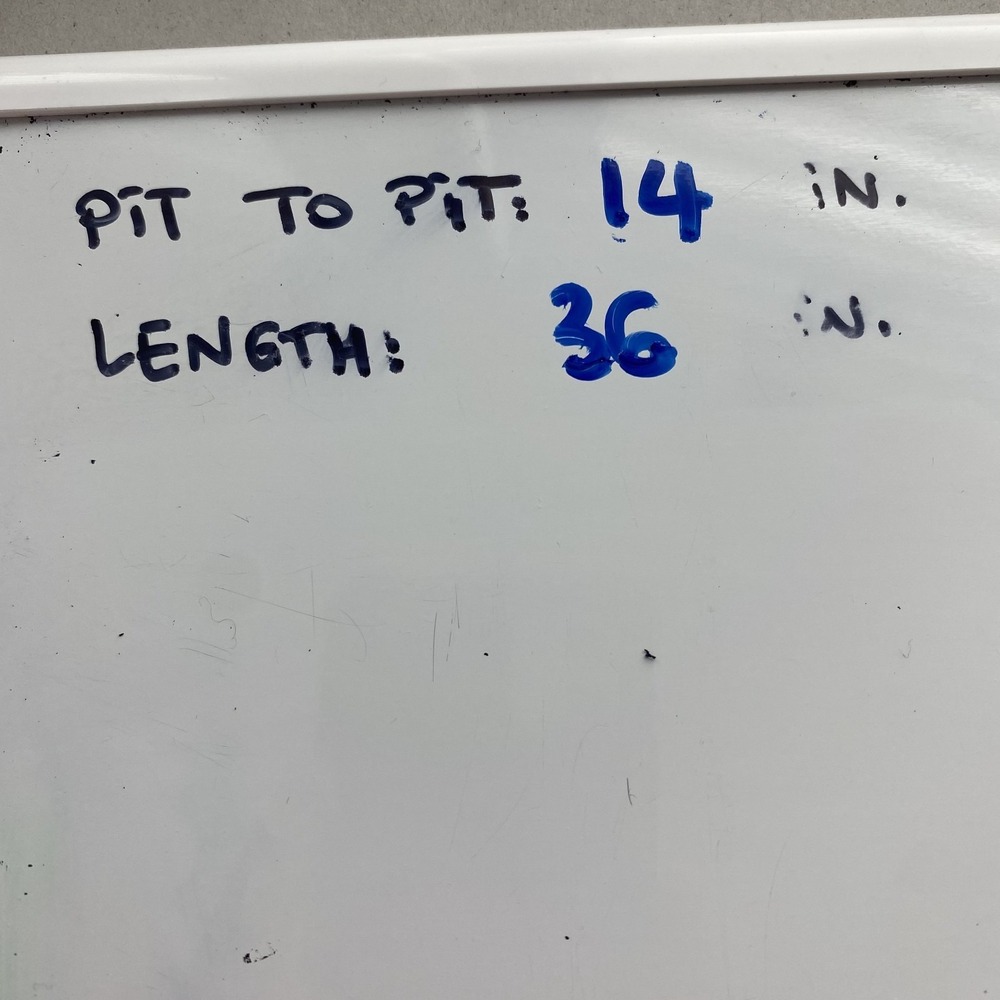 PiT TO PiT: 14 iN.
LENGTH: 36 iN.